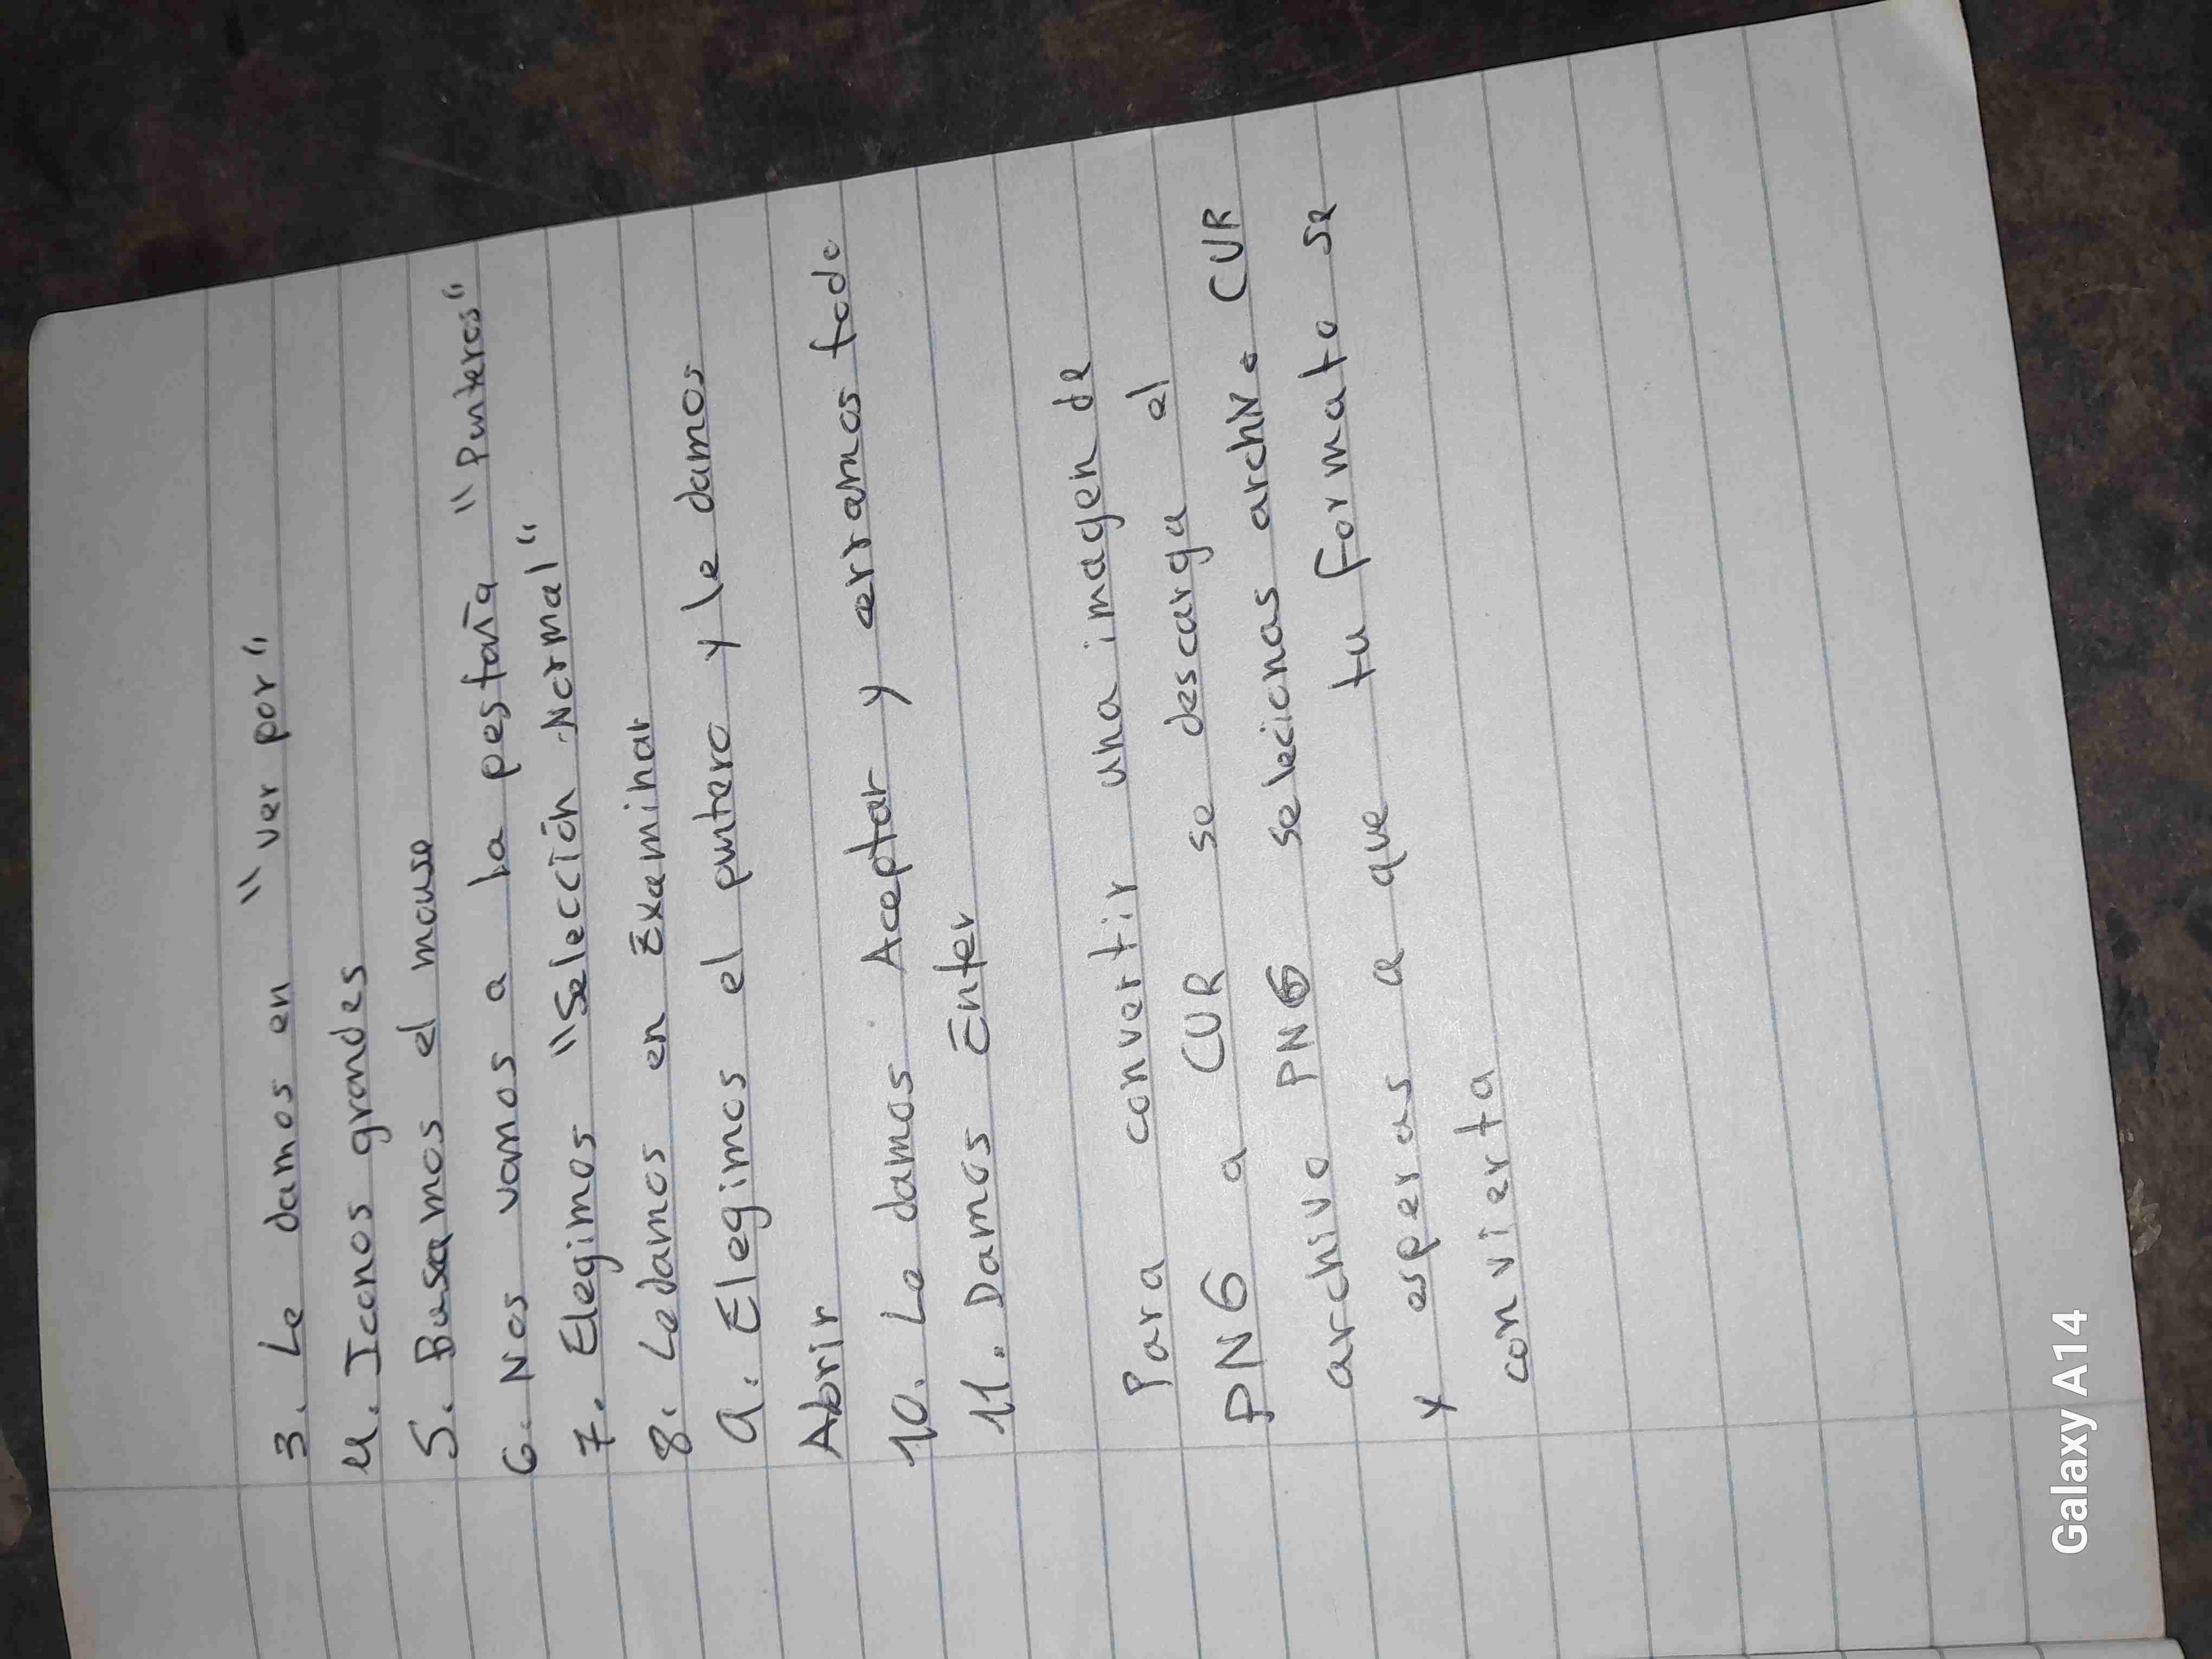 3. Le damos en "ver por"
4. Iconos grandes
5. Buscamos el mouse
6. Nos vamos a la pestaña "Punteros"
7. Elegimos "Selección Normal"
8. Le damos en Examinar
9. Elegimos el puntero y le damos
Abrir
10. Le damos Aceptar y cerramos todo
11. Damos Enter
Para convertir una imagen de
PNG a CUR se descarga el
archivo PNG selecionas CUR
y esperas a que tu formato se
convierta
Galaxy A14